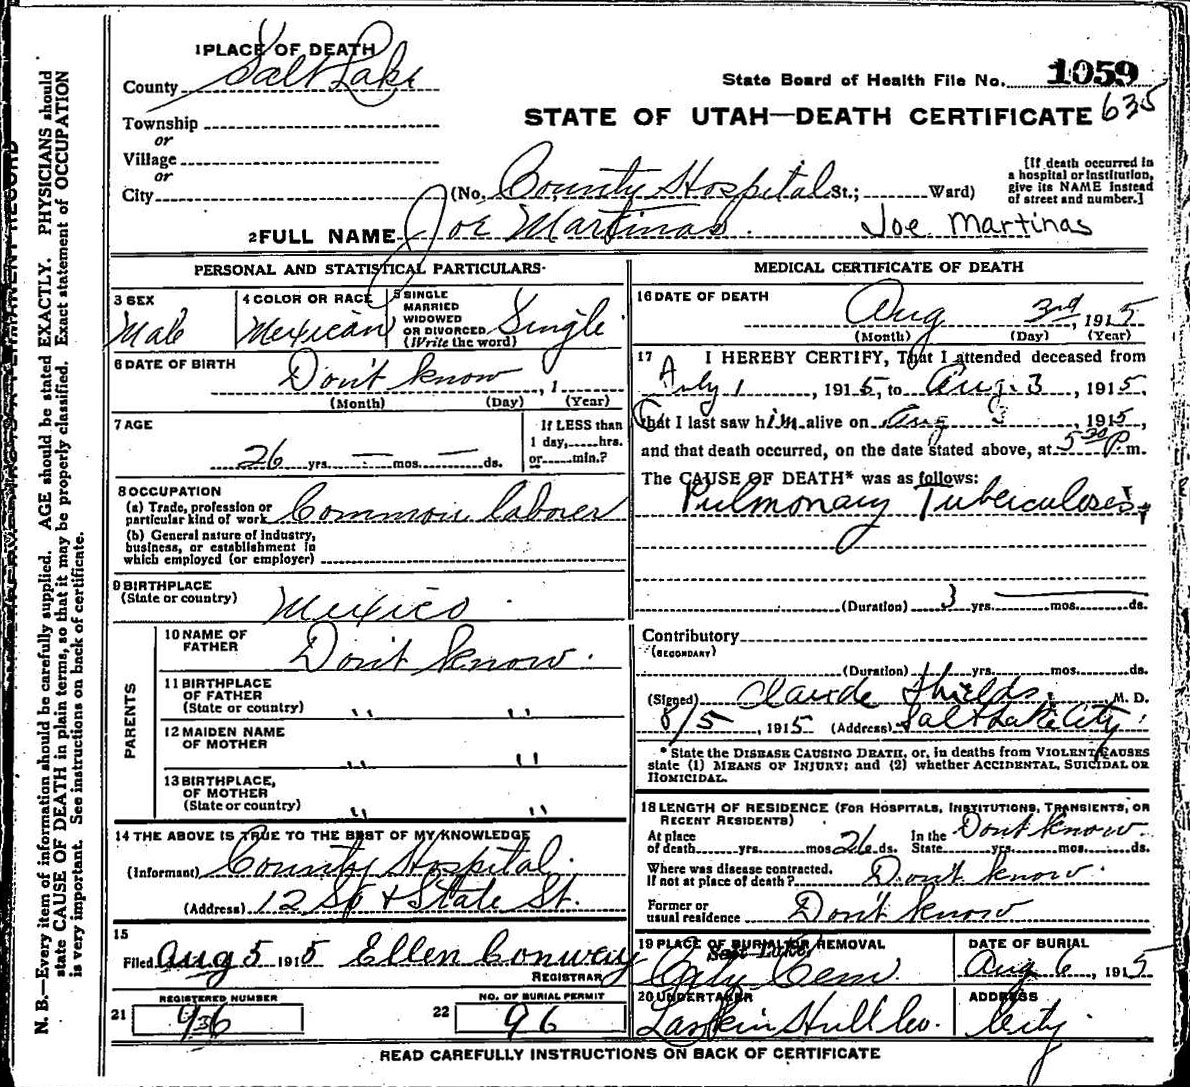 1 PLACE OF DEATH
County Salt Lake
State Board of Health File No. 1059
STATE OF UTAH—DEATH CERTIFICATE 635
Township
or
Village
or
City (No. County Hospital St.; Ward)
[If death occurred in
a hospital or institution,
give its NAME instead
of street and number.]
2 FULL NAME Joe Martinas. Joe Martinas
PERSONAL AND STATISTICAL PARTICULARS
3 SEX
Male
4 COLOR OR RACE
Mexican
5 SINGLE
MARRIED
WIDOWED
OR DIVORCED
(Write the word)
Single
6 DATE OF BIRTH
Don't know, 1
(Month) (Day) (Year)
7 AGE
26 yrs. — mos. — ds.
If LESS than
1 day, hrs.
or min.?
8 OCCUPATION
(a) Trade, profession or
particular kind of work Common laborer
(b) General nature of industry,
business, or establishment in
which employed (or employer)
9 BIRTHPLACE
(State or country) Mexico
PARENTS
10 NAME OF
FATHER Don't know.
11 BIRTHPLACE
OF FATHER
(State or country) " "
12 MAIDEN NAME
OF MOTHER " "
13 BIRTHPLACE,
OF MOTHER
(State or country) " "
14 THE ABOVE IS TRUE TO THE BEST OF MY KNOWLEDGE
(Informant) County Hospital.
(Address) 12 So & State St.
15
Filed Aug 5 1915 Ellen Conway
REGISTRAR
REGISTERED NUMBER
21 936
NO. OF BURIAL PERMIT
22 96
MEDICAL CERTIFICATE OF DEATH
16 DATE OF DEATH
Aug 3rd, 1915
(Month) (Day) (Year)
17 I HEREBY CERTIFY, That I attended deceased from
July 1, 1915, to Aug. 3, 1915,
that I last saw him alive on Aug 3, 1915,
and that death occurred, on the date stated above, at 5 30 P.m.
The CAUSE OF DEATH* was as follows:
Pulmonary Tuberculosis
(Duration) 3 yrs. mos. ds.
Contributory
(SECONDARY)
(Duration) yrs. mos. ds.
(Signed) Claude Shields. M. D.
8/5, 1915 (Address) Salt Lake City
* State the DISEASE CAUSING DEATH, or, in deaths from VIOLENT CAUSES
state (1) MEANS OF INJURY; and (2) whether ACCIDENTAL, SUICIDAL OR
HOMICIDAL.
18 LENGTH OF RESIDENCE (FOR HOSPITALS, INSTITUTIONS, TRANSIENTS, OR
RECENT RESIDENTS)
At place
of death yrs. mos 26 ds.
In the
State yrs. mos. ds. Don't know.
Where was disease contracted.
If not at place of death? Don't know.
Former or
usual residence Don't know
19 PLACE OF BURIAL OR REMOVAL
Salt Lake
City Cem.
DATE OF BURIAL
Aug 6, 1915
20 UNDERTAKER
Larkin Hull Co.
ADDRESS
City.
READ CAREFULLY INSTRUCTIONS ON BACK OF CERTIFICATE
N. B.—Every item of information should be carefully supplied. AGE should be stated EXACTLY. PHYSICIANS should
state CAUSE OF DEATH in plain terms, so that it may be properly classified. Exact statement of OCCUPATION
is very important. See instructions on back of certificate.